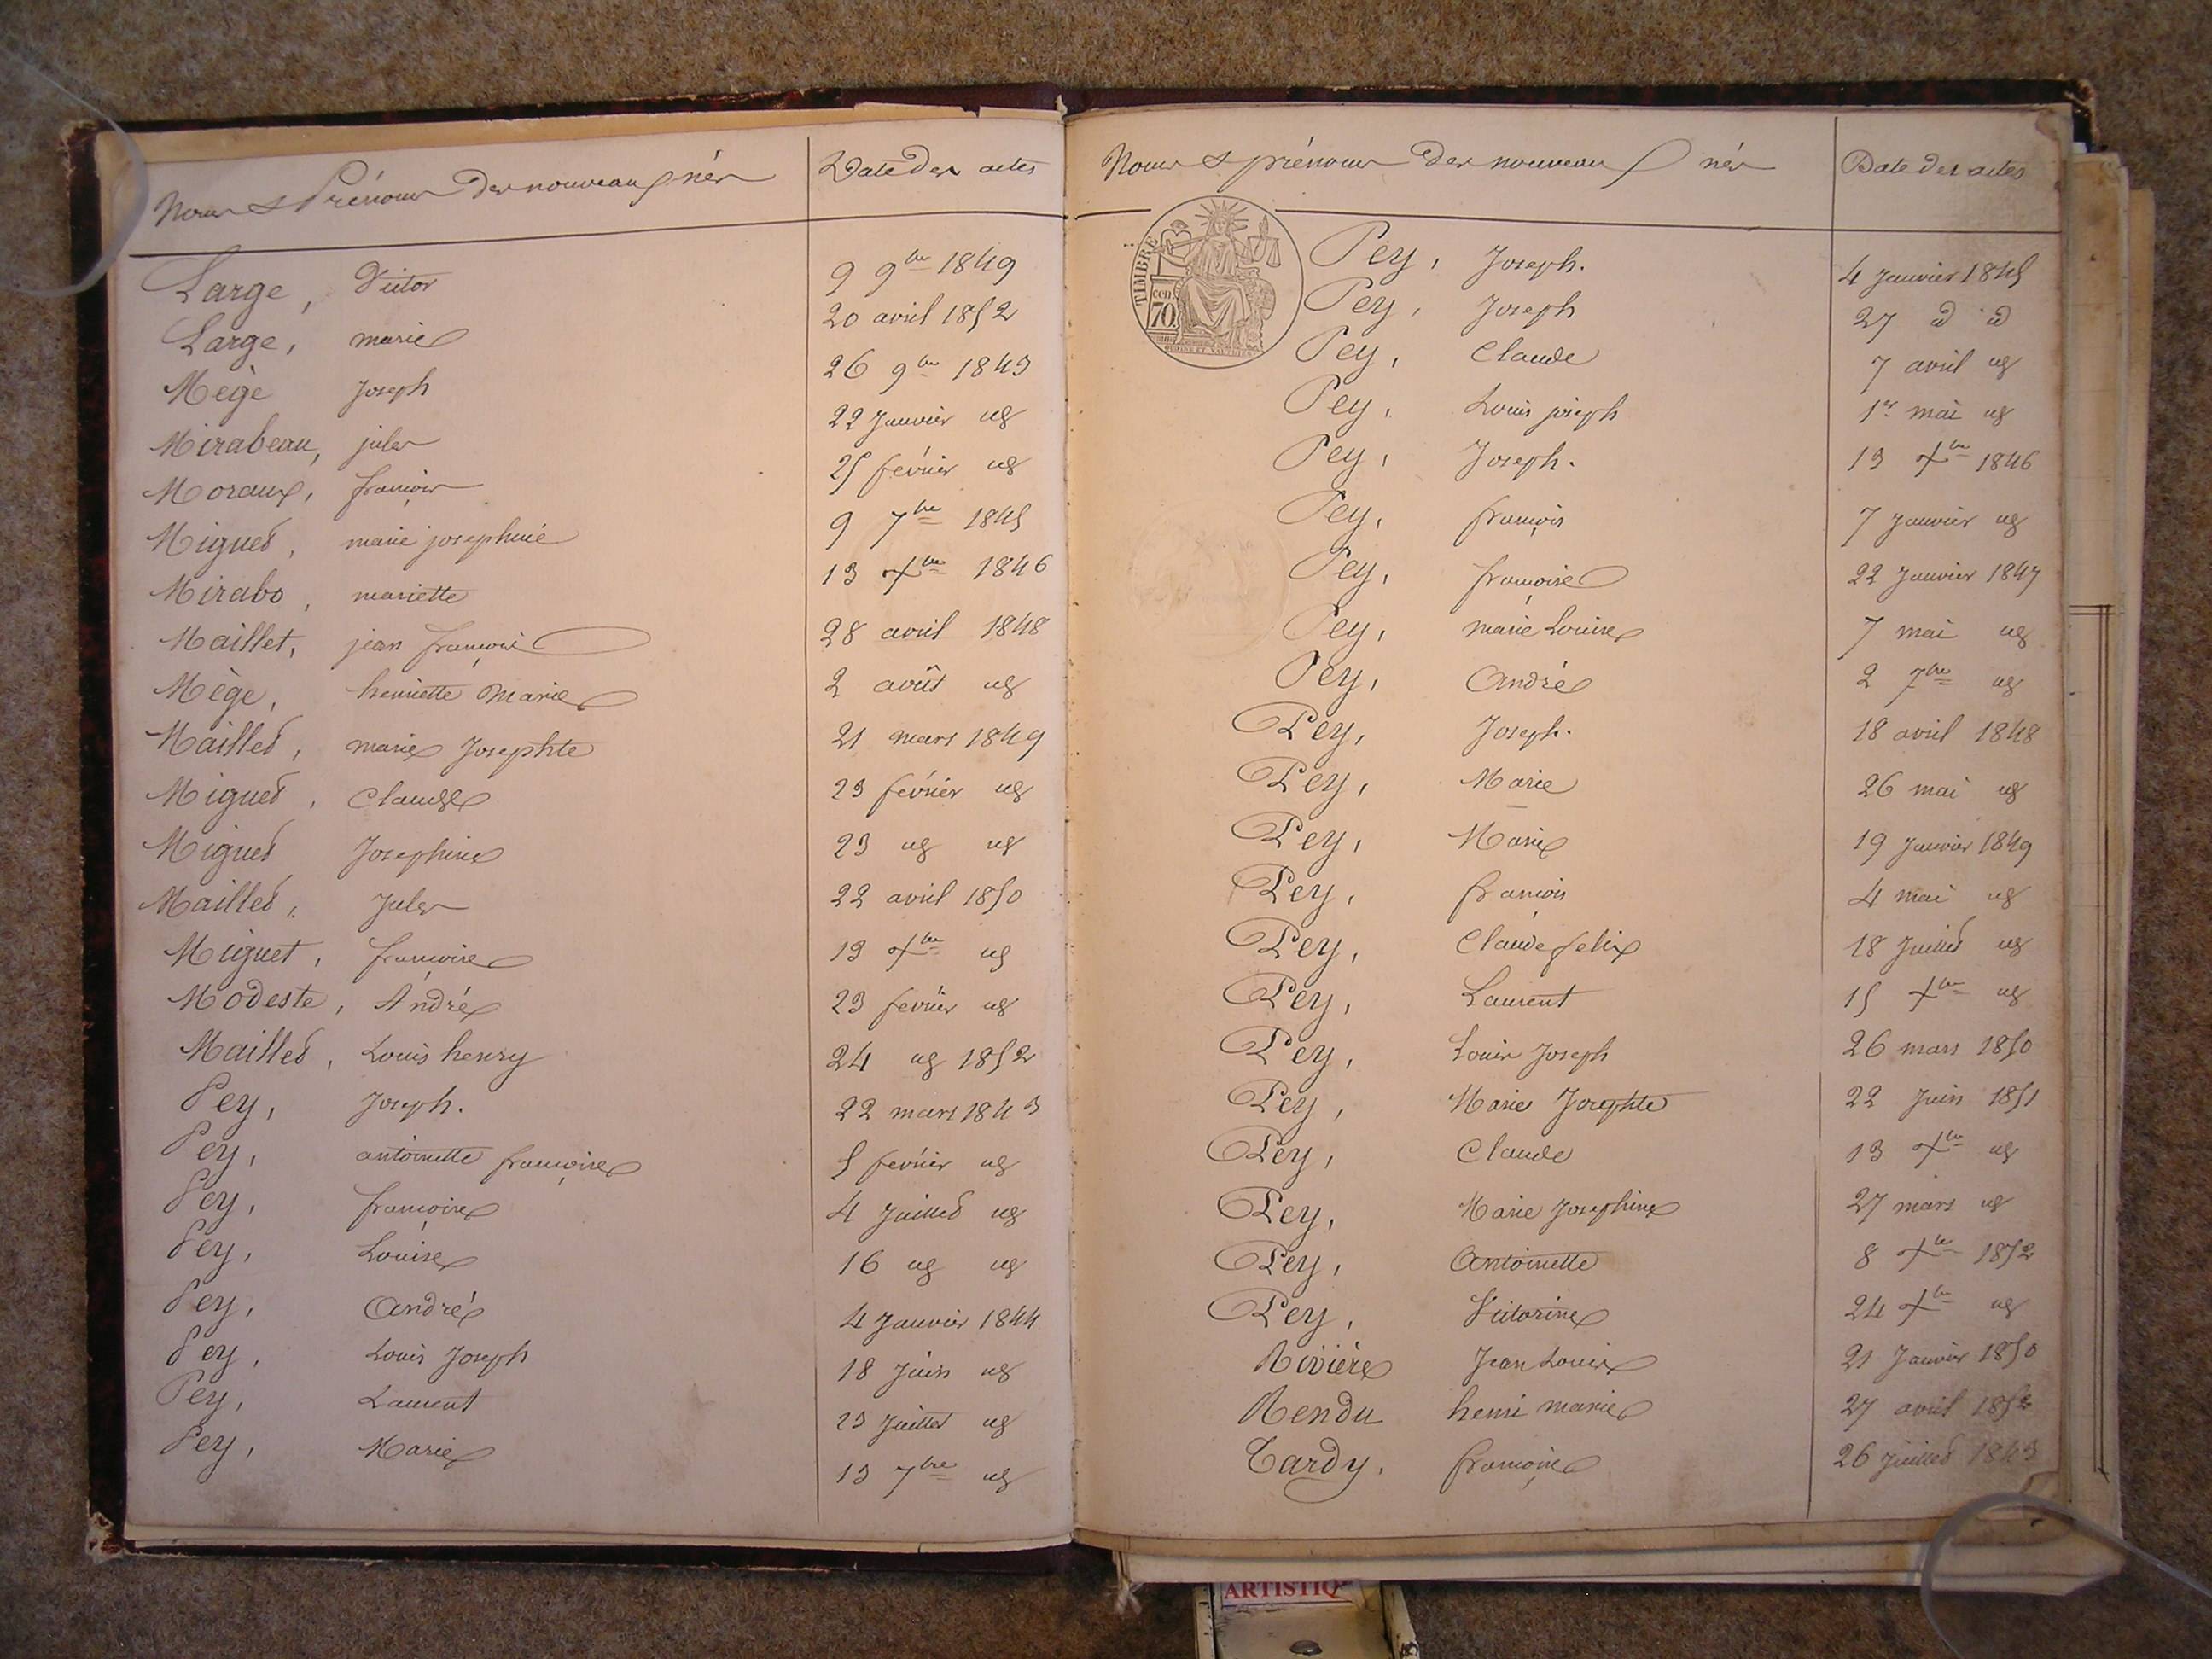 Noms & Prénoms des nouveaux nés Date des actes
Large, Victor 9 9bre 1849
Large, marie 20 avril 1852
Mège Joseph 26 9bre 1843
Mirabeau, jules 22 Janvier id
Moraux, françois 25 fevrier id
Miguet, marie josephine 9 7bre 1845
Mirabo, mariette 13 Xbre 1846
Maillet, jean françois 28 avril 1848
Mège, henriette Marie 2 août id
Maillet, marie Josephte 21 mars 1849
Miguet, Claude 23 février id
Miguet Josephine 23 id id
Maillet, Jules 22 avril 1850
Miguet, françoise 13 Xbre id
Modeste, André 23 fevrier id
Maillet, Louis henry 24 id 1852
Pey, Joseph. 22 mars 1843
Pey, antoinette françoise 5 fevrier id
Pey, françoise 4 Juillet id
Pey, Louise 16 id id
Pey, André 4 Janvier 1844
Pey, Louis Joseph 18 juin id
Pey, Laurent 23 Juillet id
Pey, Marie 13 7bre id
Noms & prénoms des nouveaux nés Date des actes
TIMBRE
70 cen.
Pey, Joseph. 4 Janvier 1845
Pey, Joseph 27 d d
Pey, Claude 7 avril id
Pey, Louis joseph 1er mai id
Pey, Joseph. 13 Xbre 1846
Pey, françois 7 janvier id
Pey, françoise 22 Janvier 1847
Pey, marie Louise 7 mai id
Pey, André 2 7bre id
Pey, Joseph. 18 avril 1848
Pey, Marie 26 mai id
Pey, Marie 19 Janvier 1849
Pey, francois 4 mai id
Pey, Claude felix 18 Juillet id
Pey, Laurent 15 Xbre id
Pey, Louis Joseph 26 mars 1850
Pey, Marie Josephte 22 Juin 1851
Pey, Claude 13 Xbre id
Pey, Marie Josephine 27 mars id
Pey, Antoinette 8 Xbre 1852
Pey, Victorine 24 Xbre id
Rivière Jean Louis 21 Janvier 1850
Rendu henri marie 27 avril 1852
Tardy, françoise 26 juillet 1843
ARTISTIQ